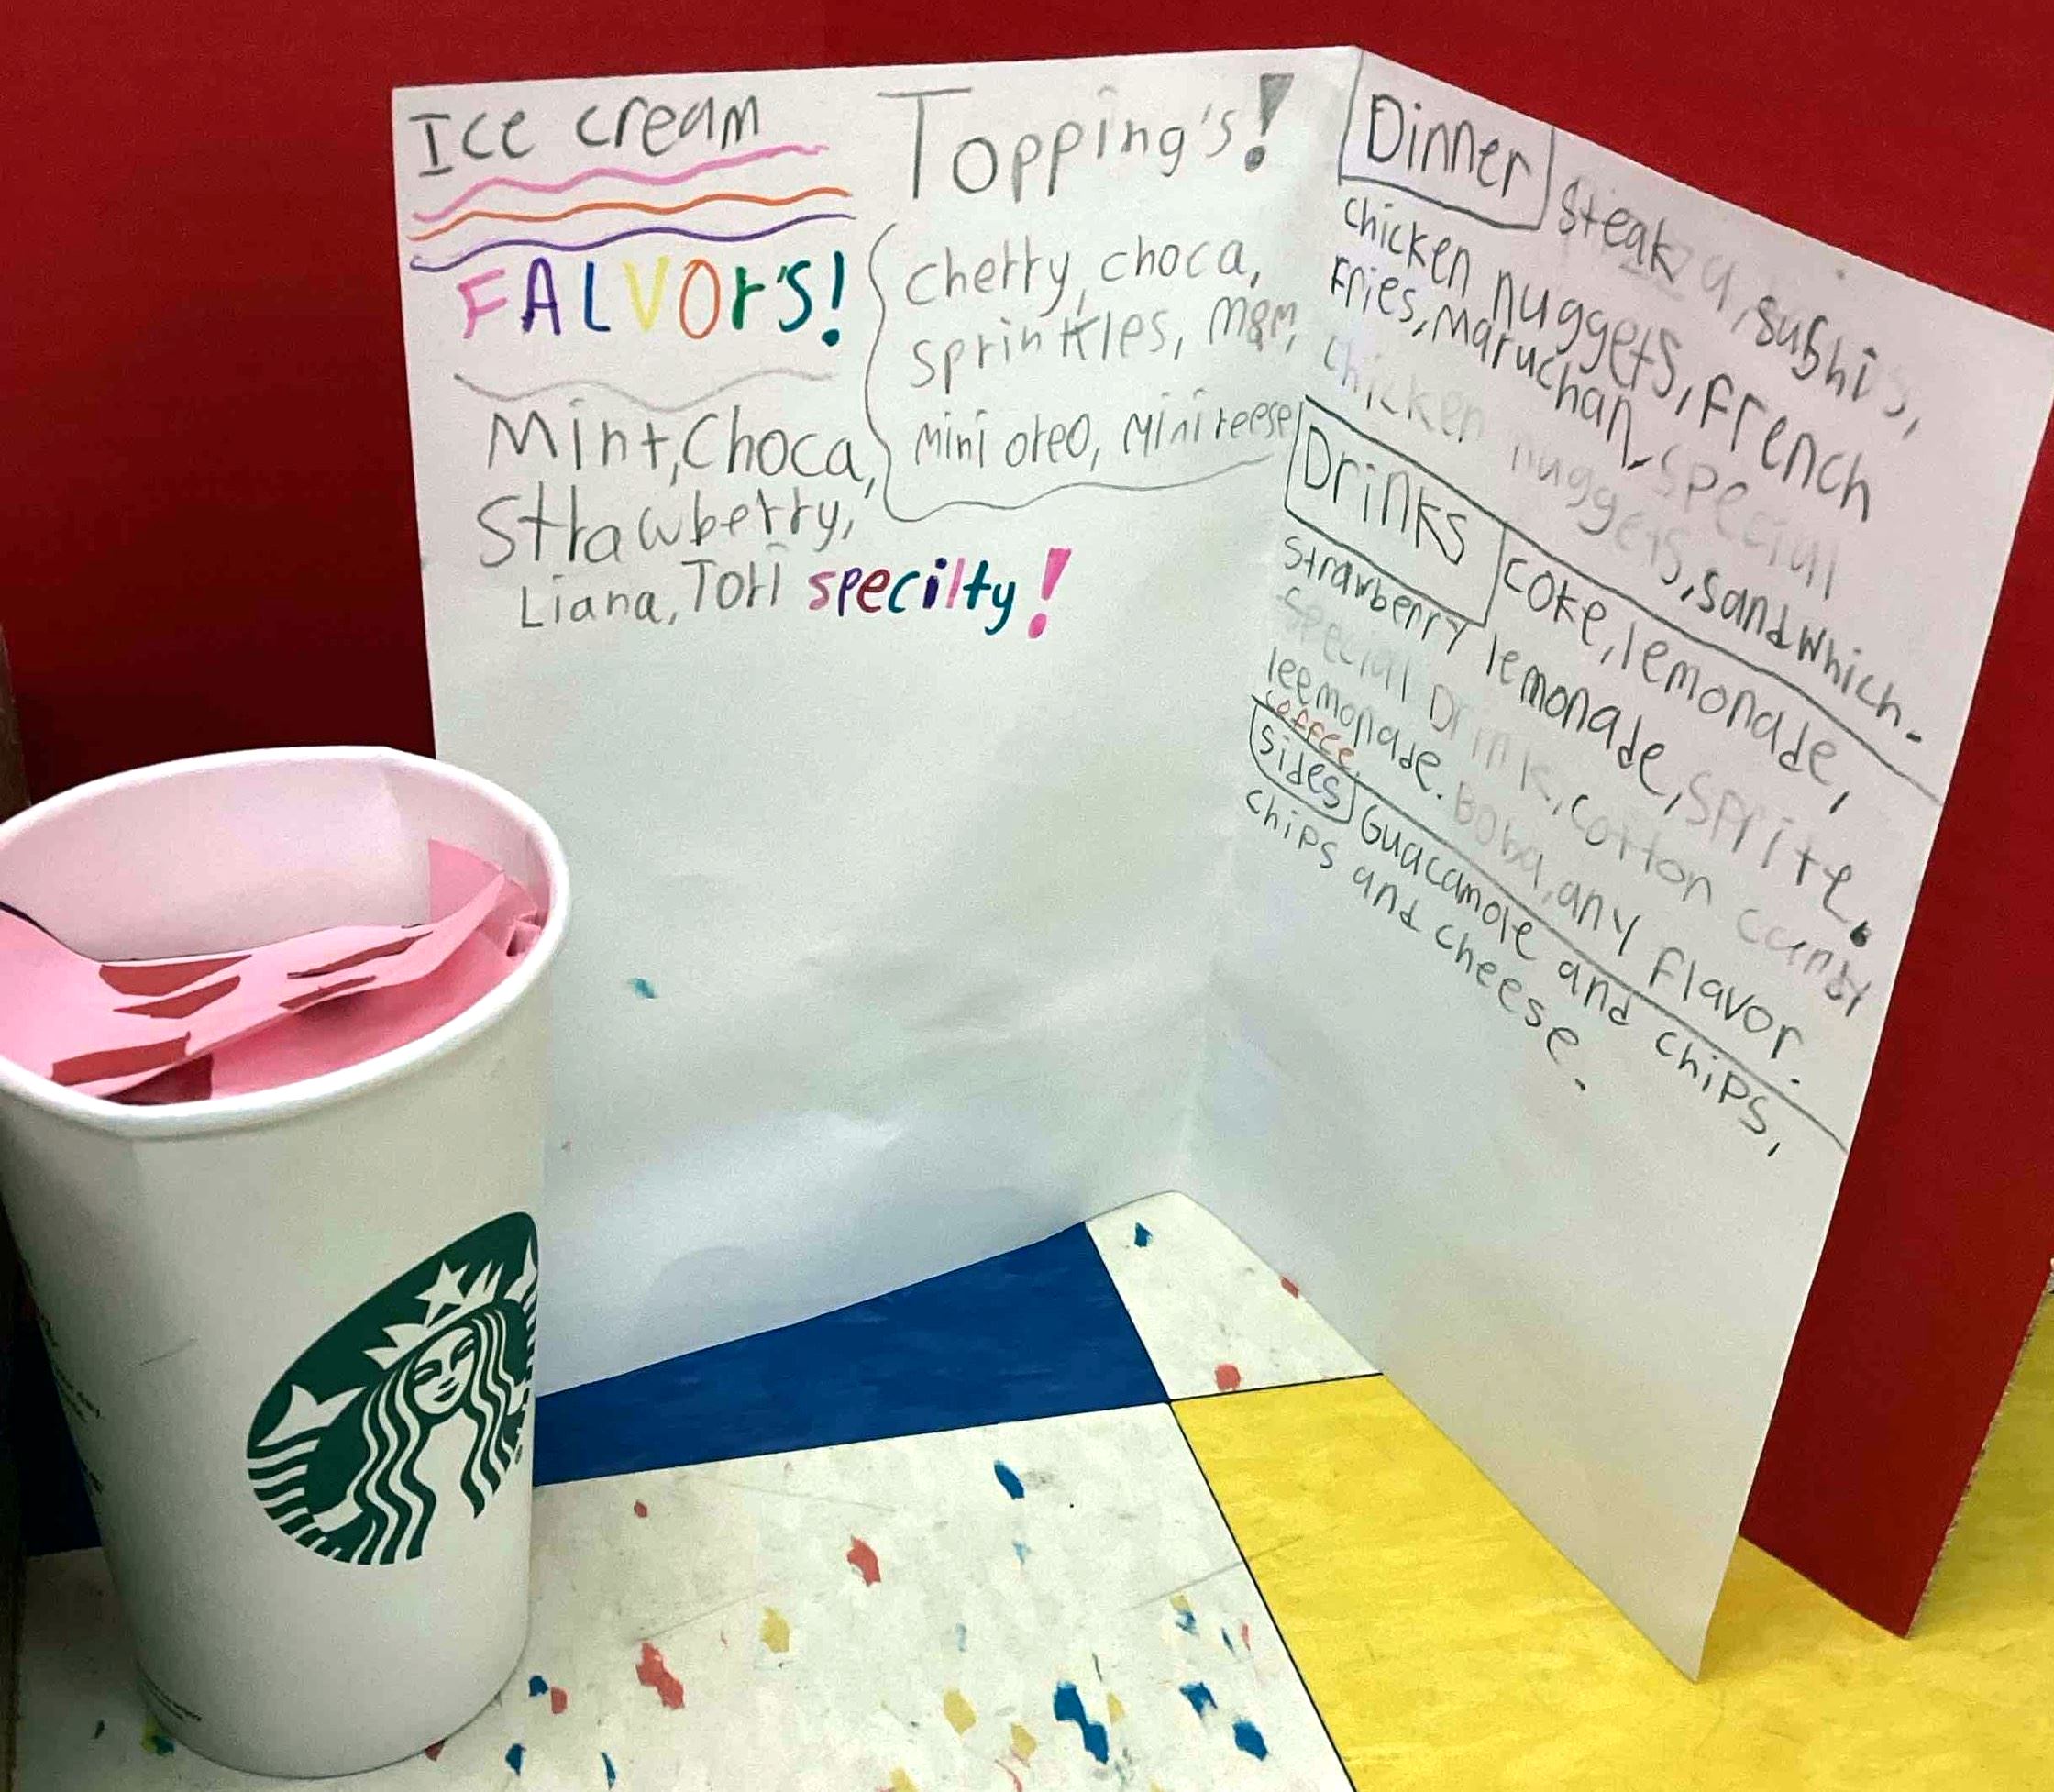 Ice cream
FALVOr'S!
Mint, Choca,
Strawberry,
Liana, Tori specilty!
Topping's!
cherry, choca,
sprinkles, M&M,
Mini oreo, Mini reese
Dinner steak, sushi's,
chicken nuggets, French
Fries, Maruchan, special
chicken nuggets, sandwhich.
Drinks coke, lemonade,
Strawberry lemonade, Sprite.
Special Drink, cotton candy
leemonade. Boba, any flavor.
coffee.
Sides Guacamole and chips,
chips and cheese.